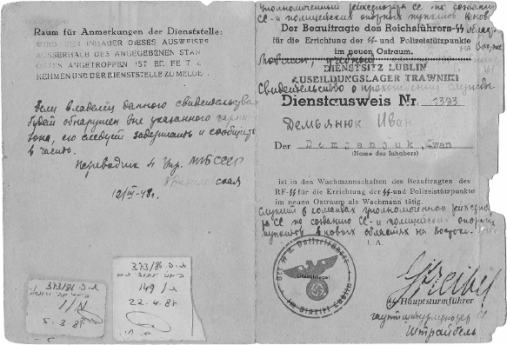 Raum für Anmerkungen der Dienststelle:
WIRD DER INHABER DIESES AUSWEISES
AUSSERHALB DES ANGEGEBENEN STAN
ORTES ANGETROFFEN IST ER FE T Z
NEHMEN UND DER DIENSTSTELLE ZU MELDE
Если владелец данного свидетельства
будет обнаружен вне указанного
его следует задержать и сообщить
в часть.
Переводчик 4 Упр. МГБ СССР
12/III-48г.
373/86 ת.פ
1/א
5.3.87
373/86 ת.פ
149/
22.4.87
уполномоченный рейхсфюрера СС по созданию
СС и полицейских опорных пунктов
Der Beauftragte des Reichsführers-SS
für die Errichtung der SS- und Polizeistützpunkte
im neuen Ostraum.
DIENSTSITZ LUBLIN
AUSBILDUNGSLAGER TRAWNIKI
Свидетельство о прохождении службы
Dienstausweis Nr. 1393
Демьянюк Иван
Der Demjanjuk, Iwan
(Name des Inhabers)
ist in den Wachmannschaften des Beauftragten des
RF-SS für die Errichtung der SS- und Polizeistützpunkte
im neuen Ostraum als Wachmann tätig.
Служит в командах уполномоченного
СС по созданию СС и полицейских опорных
пунктов в новых областях на востоке.
I. A.
Der SS u. Polizeiführer
im Distrikt Lublin
Streibel
SS Hauptsturmführer
гауптштурмфюрер СС
Штрайбель